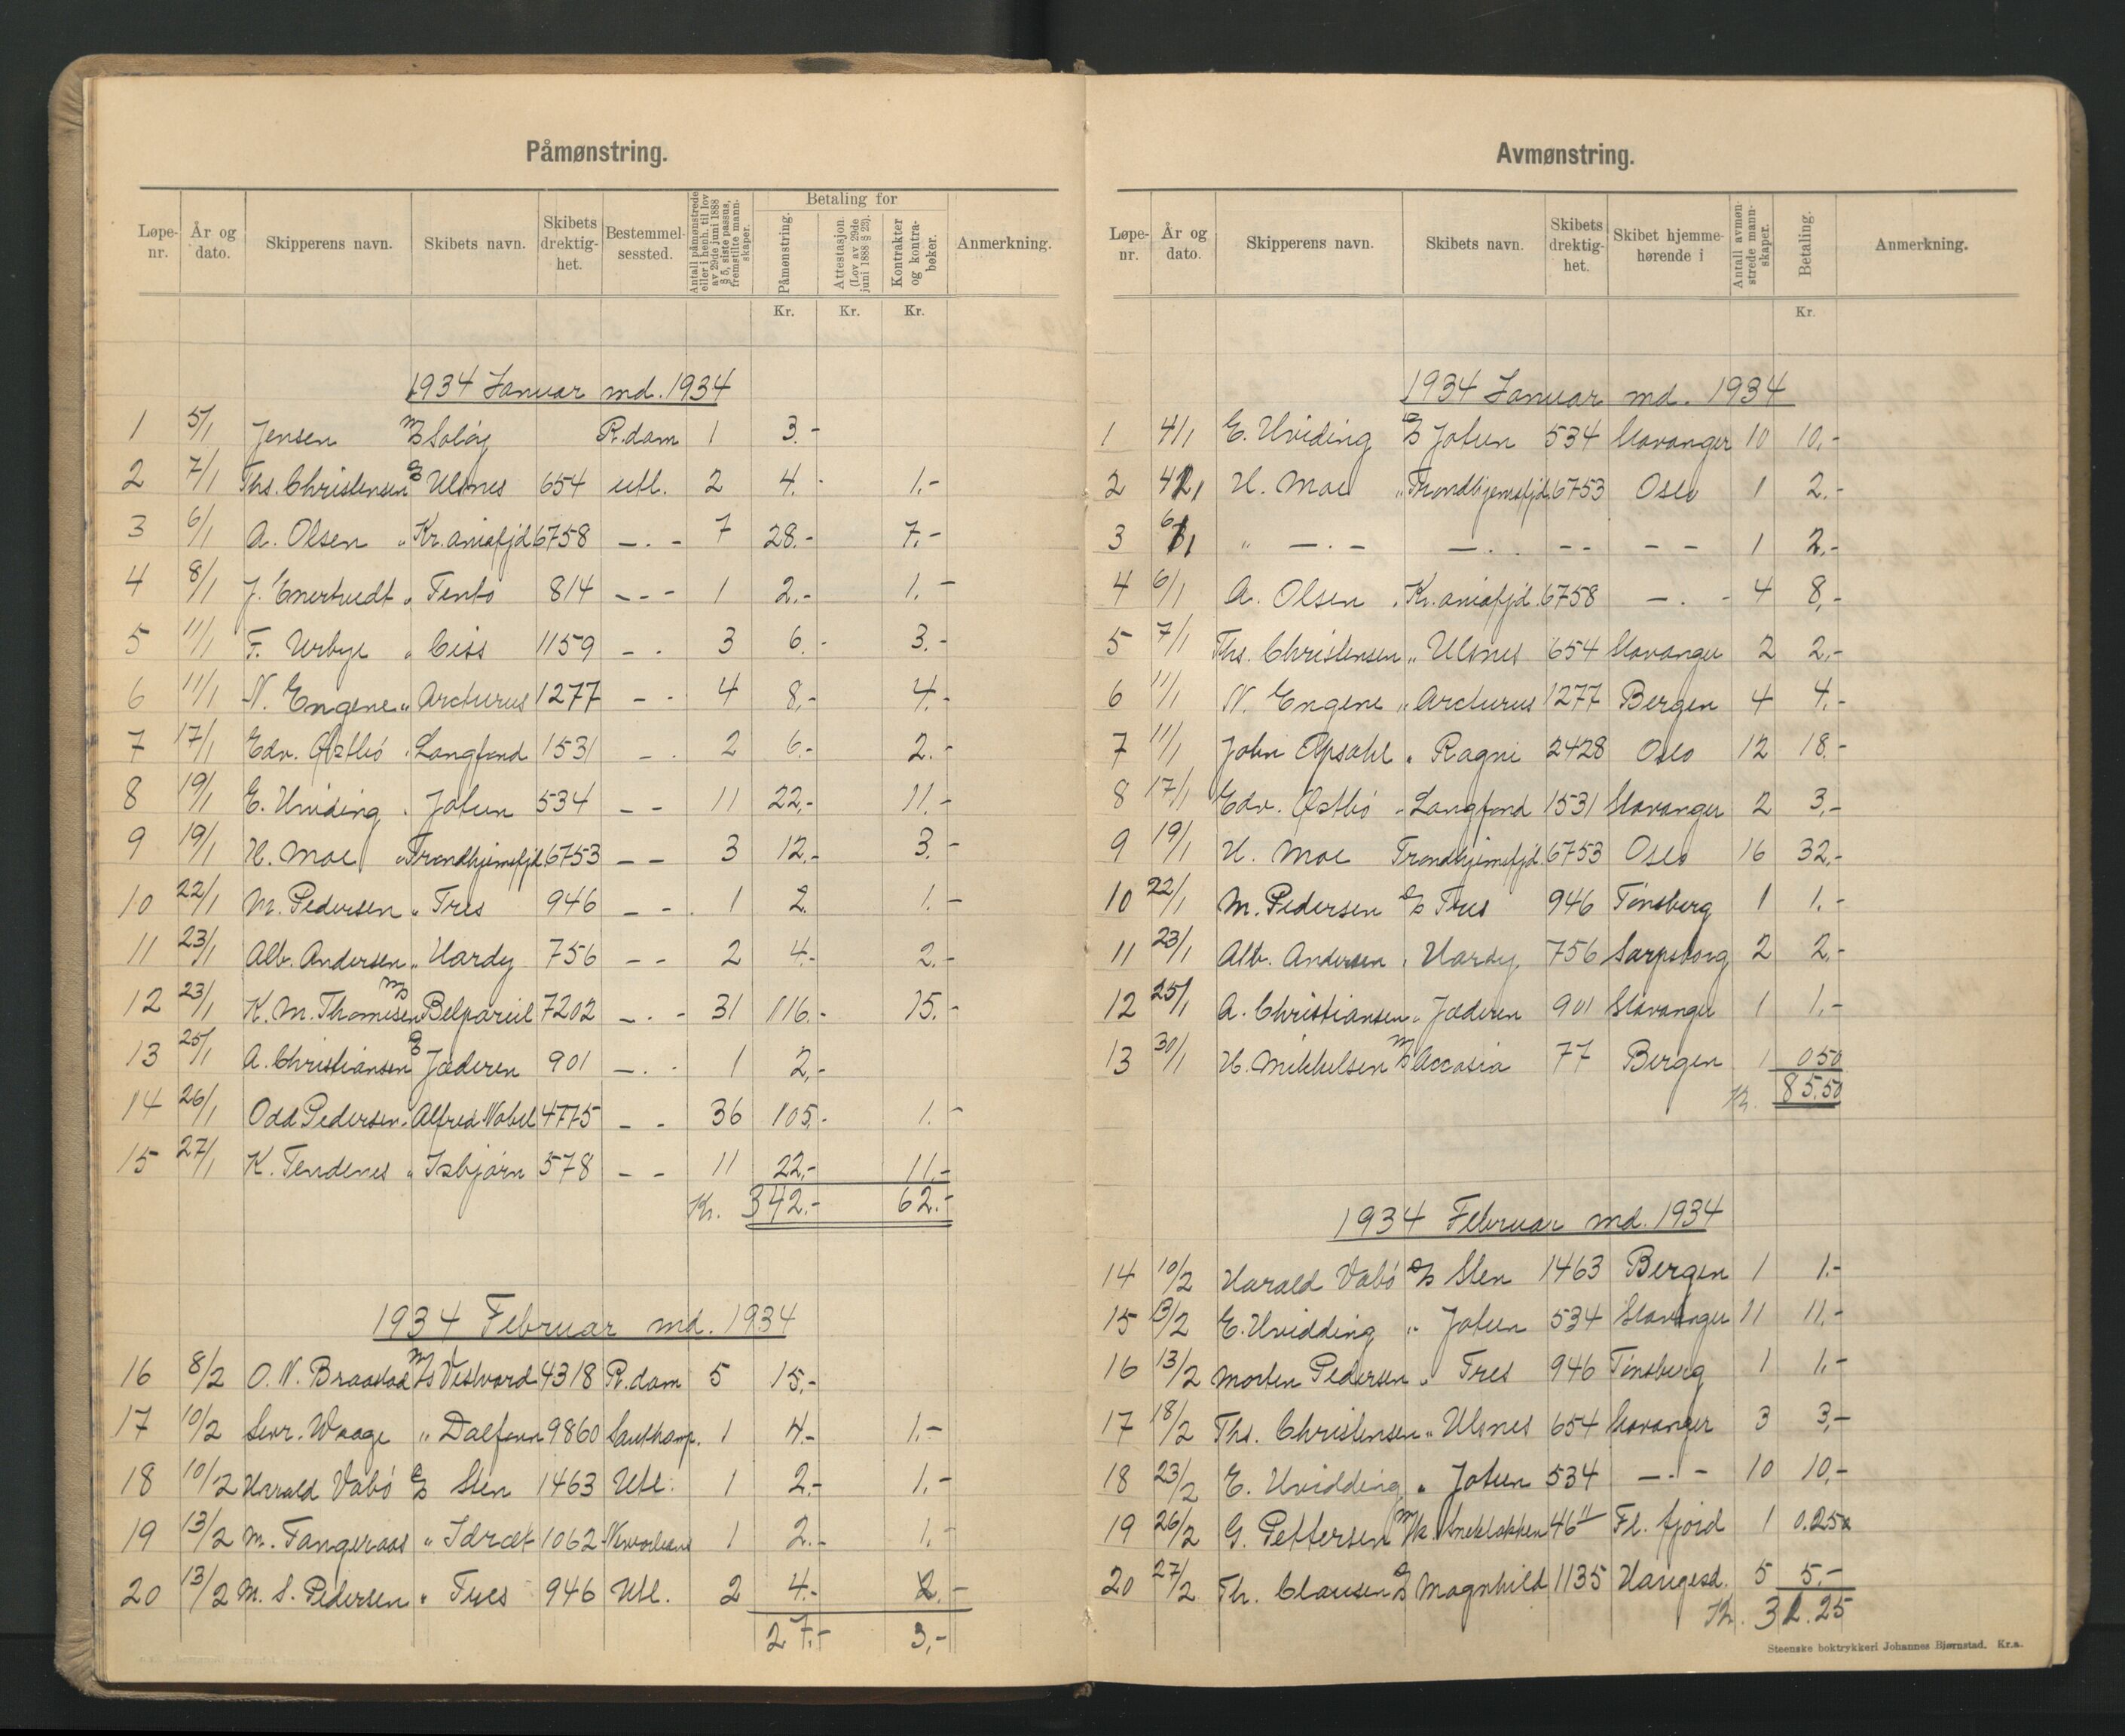 Påmønstring.
Løpe-nr. År og dato. Skipperens navn. Skibets navn. Skibets drektig-het. Bestemmel-sessted. Antall påmønstrede eller i henh. til lov av 29de juni 1888 § 5, siste passus, fremstilte mann-skaper. Betaling for Påmønstring. Attestasjon (Lov av 29de juni 1888 § 23). Kontrakter og kontra-bøker. Anmerkning.
Kr. Kr. Kr.
1934 Januar md. 1934
1 5/1 Jensen M/S Soløy R.dam 1 3.-
2 7/1 Ths. Christensen D/S Ulsnes 654 utl. 2 4.- 1.-
3 6/1 A. Olsen " Kr.aniafjd 6758 - . - 7 28.- 7.-
4 8/1 J. Enertvedt " Tento 814 - - - 1 2.- 1.-
5 11/1 F. Urbye " Ciss 1159 - . 3 6.- 3.-
6 11/1 N. Engene " Arcturus 1277 - - 4 8.- 4.-
7 17/1 Edv. Østbö " Langfond 1531 - . 2 6.- 2.-
8 19/1 E. Hviding " Jotun 534 - - 11 22.- 11.-
9 19/1 H. Moe " Trondhjemsfjd. 6753 - - 3 12.- 3.-
10 22/1 M. Pedersen " Tres 946 - - . 1 2. 1.-
11 23/1 Alb. Andersen " Hardy 756 - - 2 4.- 2.-
12 23/1 K. M. Thomesen M/S Belpareil 7202 - . - 31 116.- 15.-
13 25/1 A. Christiansen D/S Jæderen 901 - . - 1 2,-
14 26/1 Odd Pedersen " Alfred Nobel 4775 - - 36 105.- 1.-
15 27/1 K. Tendenes " Isbjørn 578 - - 11 22,- 11.-
Kr. 342.- 62.-
1934 Februar md. 1934
16 8/2 O. N. Braastad M/S Vestvard 4318 R.dam 5 15.-
17 10/2 Sevr. Waage " Dalfonn 9860 Southamp. 1 4.- 1.-
18 10/2 Harald Vabö D/S Sten 1463 Utl. 1 2.- 1,-
19 13/2 M. Tangeraas " Idræt 1062 Neworleans 1 2.- 1.-
20 13/2 M. S. Pedersen " Tres 946 Utl. 2 4.- 2.-
27.- 3,-
Avmønstring.
Løpe-nr. År og dato. Skipperens navn. Skibets navn. Skibets drektig-het. Skibet hjemme-hørende i Antall avmøn-strede mann-skaper. Betaling. Anmerkning.
Kr.
1934 Januar md. 1934
1 4/1 E. Hviding D/S Jotun 534 Stavanger 10 10.-
2 4/1 H. Moe " Trondhjemsfjd. 6753 Oslo 1 2.-
3 6/1 " - . - - . . - - - - 1 2.-
4 6/1 A. Olsen " Kr.aniafjd. 6758 - . - 4 8,-
5 7/1 Ths. Christensen " Ulsnes 654 Stavanger 2 2,-
6 11/1 N. Engene " Arcturus 1277 Bergen 4 4.-
7 11/1 John Opsahl " Ragni 2428 Oslo 12 18.-
8 17/1 Edv. Østbö " Langfond 1531 Stavanger 2 3,-
9 19/1 H. Moe Trondhjemsfjd. 6753 Oslo 16 32,-
10 22/1 M. Pedersen D/S Tres 946 Tönsberg 1 1.-
11 23/1 Alb. Andersen " Hardy 756 Sarpsborg 2 2,-
12 25/1 A. Christiansen " Jæderen 901 Stavanger 1 1,-
13 30/1 H. Mikkelsen M/S Accasia 77 Bergen 1 0 50
Kr. 85.50
1934 Februar md. 1934
14 10/2 Harald Vabö D/S Sten 1463 Bergen 1 1.-
15 13/2 E. Hvidding " Jotun 534 Stavanger 11 11.-
16 13/2 Morten Pedersen " Tres 946 Tönsberg 1 1.-
17 18/2 Ths. Christensen " Ulsnes 654 Stavanger 3 3,-
18 23/2 E. Hvidding " Jotun 534 - . - 10 10,-
19 26/2 G. Pettersen M/k. Sneklokken 46 Fl. fjord 1 0.25
20 27/2 Th. Clausen D/S Magnhild 1135 Haugesd. 5 5.-
Kr. 31.25
Steenske boktrykkeri Johannes Bjørnstad. Kr.a.